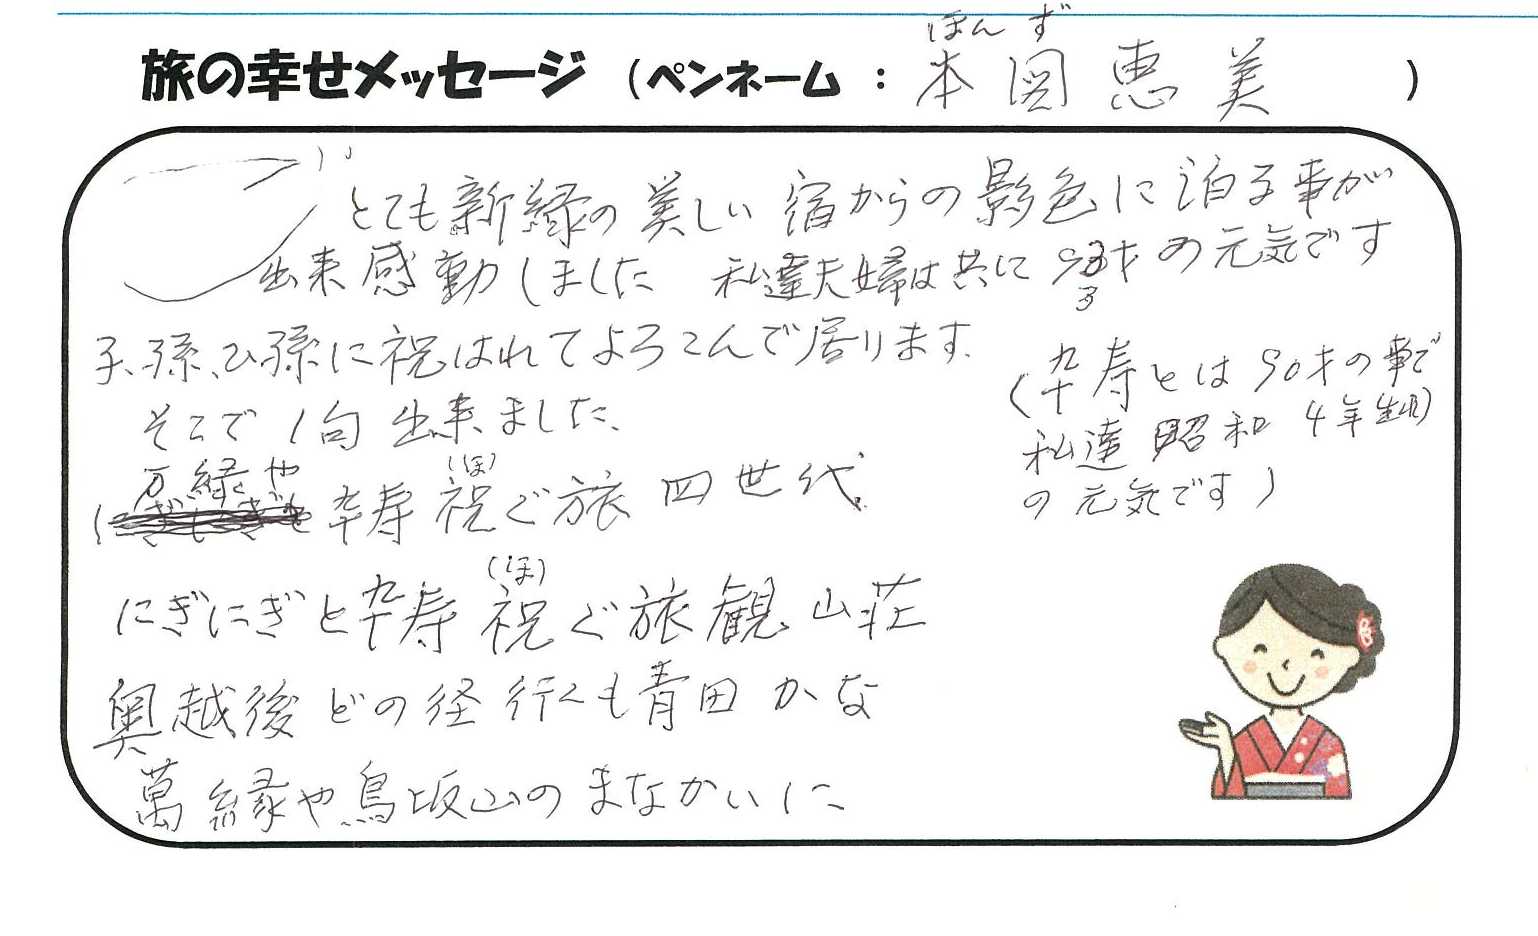 ほんず
旅の幸せメッセージ （ペンネーム ： 本図恵美 ）
とても新緑の美しい宿からの影色に泊る事が
出来感動しました 私達夫婦は共に 才の元気です
子、孫、ひ孫に祝はれてよろこんで居ります。
（卆寿とは90才の事で
私達 昭和 4年生れ）
の元気です）
そこで1句出来ました。
万緑や (ほ)
卆寿祝ぐ旅 四世代
(ほ)
にぎにぎと卆寿祝ぐ旅観山荘
奥越後どの径行くも青田かな
萬緑や鳥坂山のまなかいに